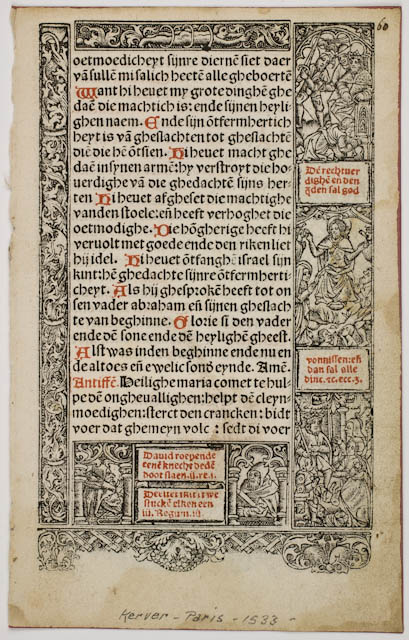 60
oetmoedicheyt sijnre diernē siet daer
vā sullē mi salich heetē alle gheboertē
Want hi heuet my grote dinghē ghe
daē die machtich is: ende sijnen heyli
ghen naem. Ende sijn ōtfermhertich
heyt is vā gheslachten tot gheslachtē
diē die hē ōtsien. Hi heuet macht ghe
daē in synen armē: hy verstroyt die ho-
uerdighe vā die ghedachtē sijns her-
ten Hi heuet afgheset die machtighe
vanden stoele: eñ heeft verhoghet die
oetmodighe. Die hōgherige heeft hi
veruolt met goede ende den riken liet
hij idel. Hi heuet ōtfanghē israel sijn
kint: hē ghedachte sijnre ōtfermherti-
cheyt. Als hij ghesprokē heeft tot on
sen vader abraham eñ sijnen gheslach
te van beghinne. Glorie si den vader
ende dē sone ende dē heylighē gheest.
Alst was inden beghinne ende nu en
de altoes eñ ewelic sond eynde. Amē.
Antiffē. Heilighe maria comet te hul-
pe dē ongheuallighen: helpt dē cleyn-
moedighen: sterct den crancken: bidt
voer dat ghemeyn volc: sedt di voer
Dē rechtuer
dighē en den
sal god
vonnissen: eñ
dan sal alle
dinc. ꝛc. ecc. 3.
Dauid roepende
eenē knecht dedē
doot slaen. ii. re. i.
elken een
iii. Regum. iii.
Kerver - Paris - 1533 -